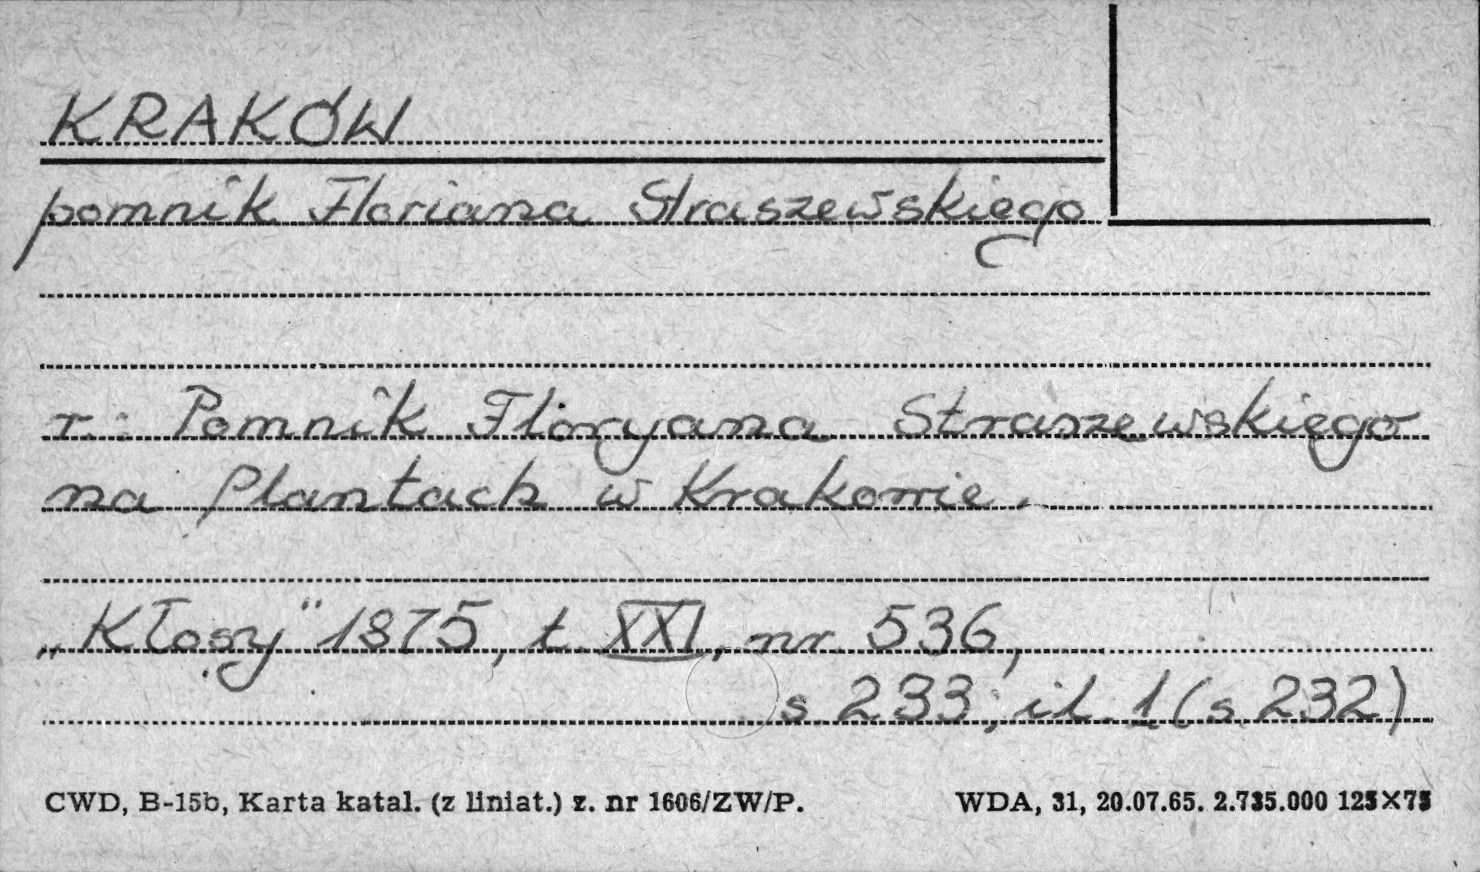 KRAKÓW
pomnik Floriana Straszewskiego
r.: Pomnik Floryana Straszewskięgo
na Plantach w Krakowie.
„Kłosy" 1875, t. XXI, nr 536,
s. 233; il. 1 (s. 232)
CWD, B-15b, Karta katal. (z liniat.) z. nr 1606/ZW/P.
WDA, 31, 20.07.65. 2.735.000 125×75